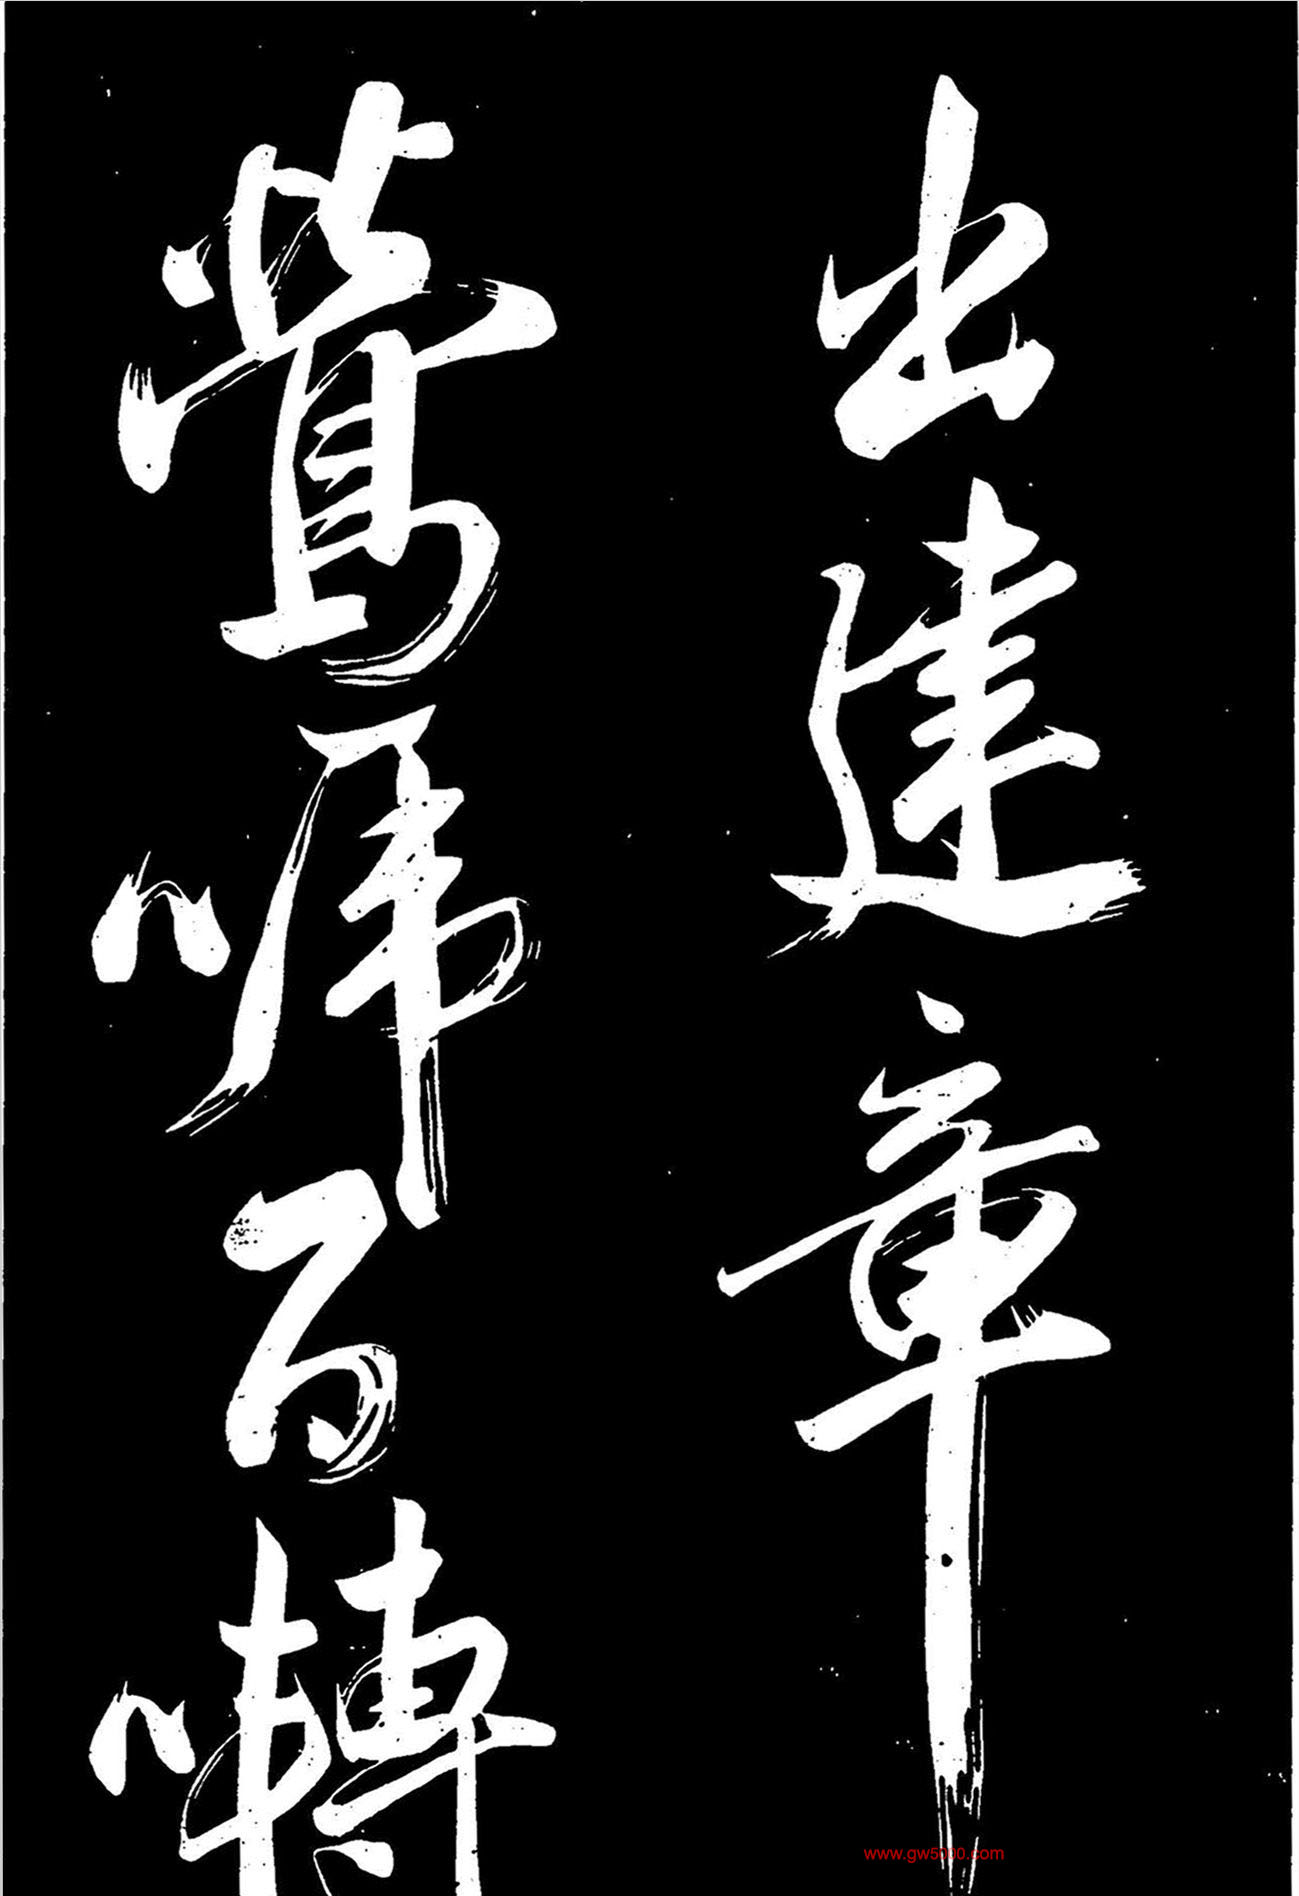 出建章
鶯啼百囀
www.gw5000.com